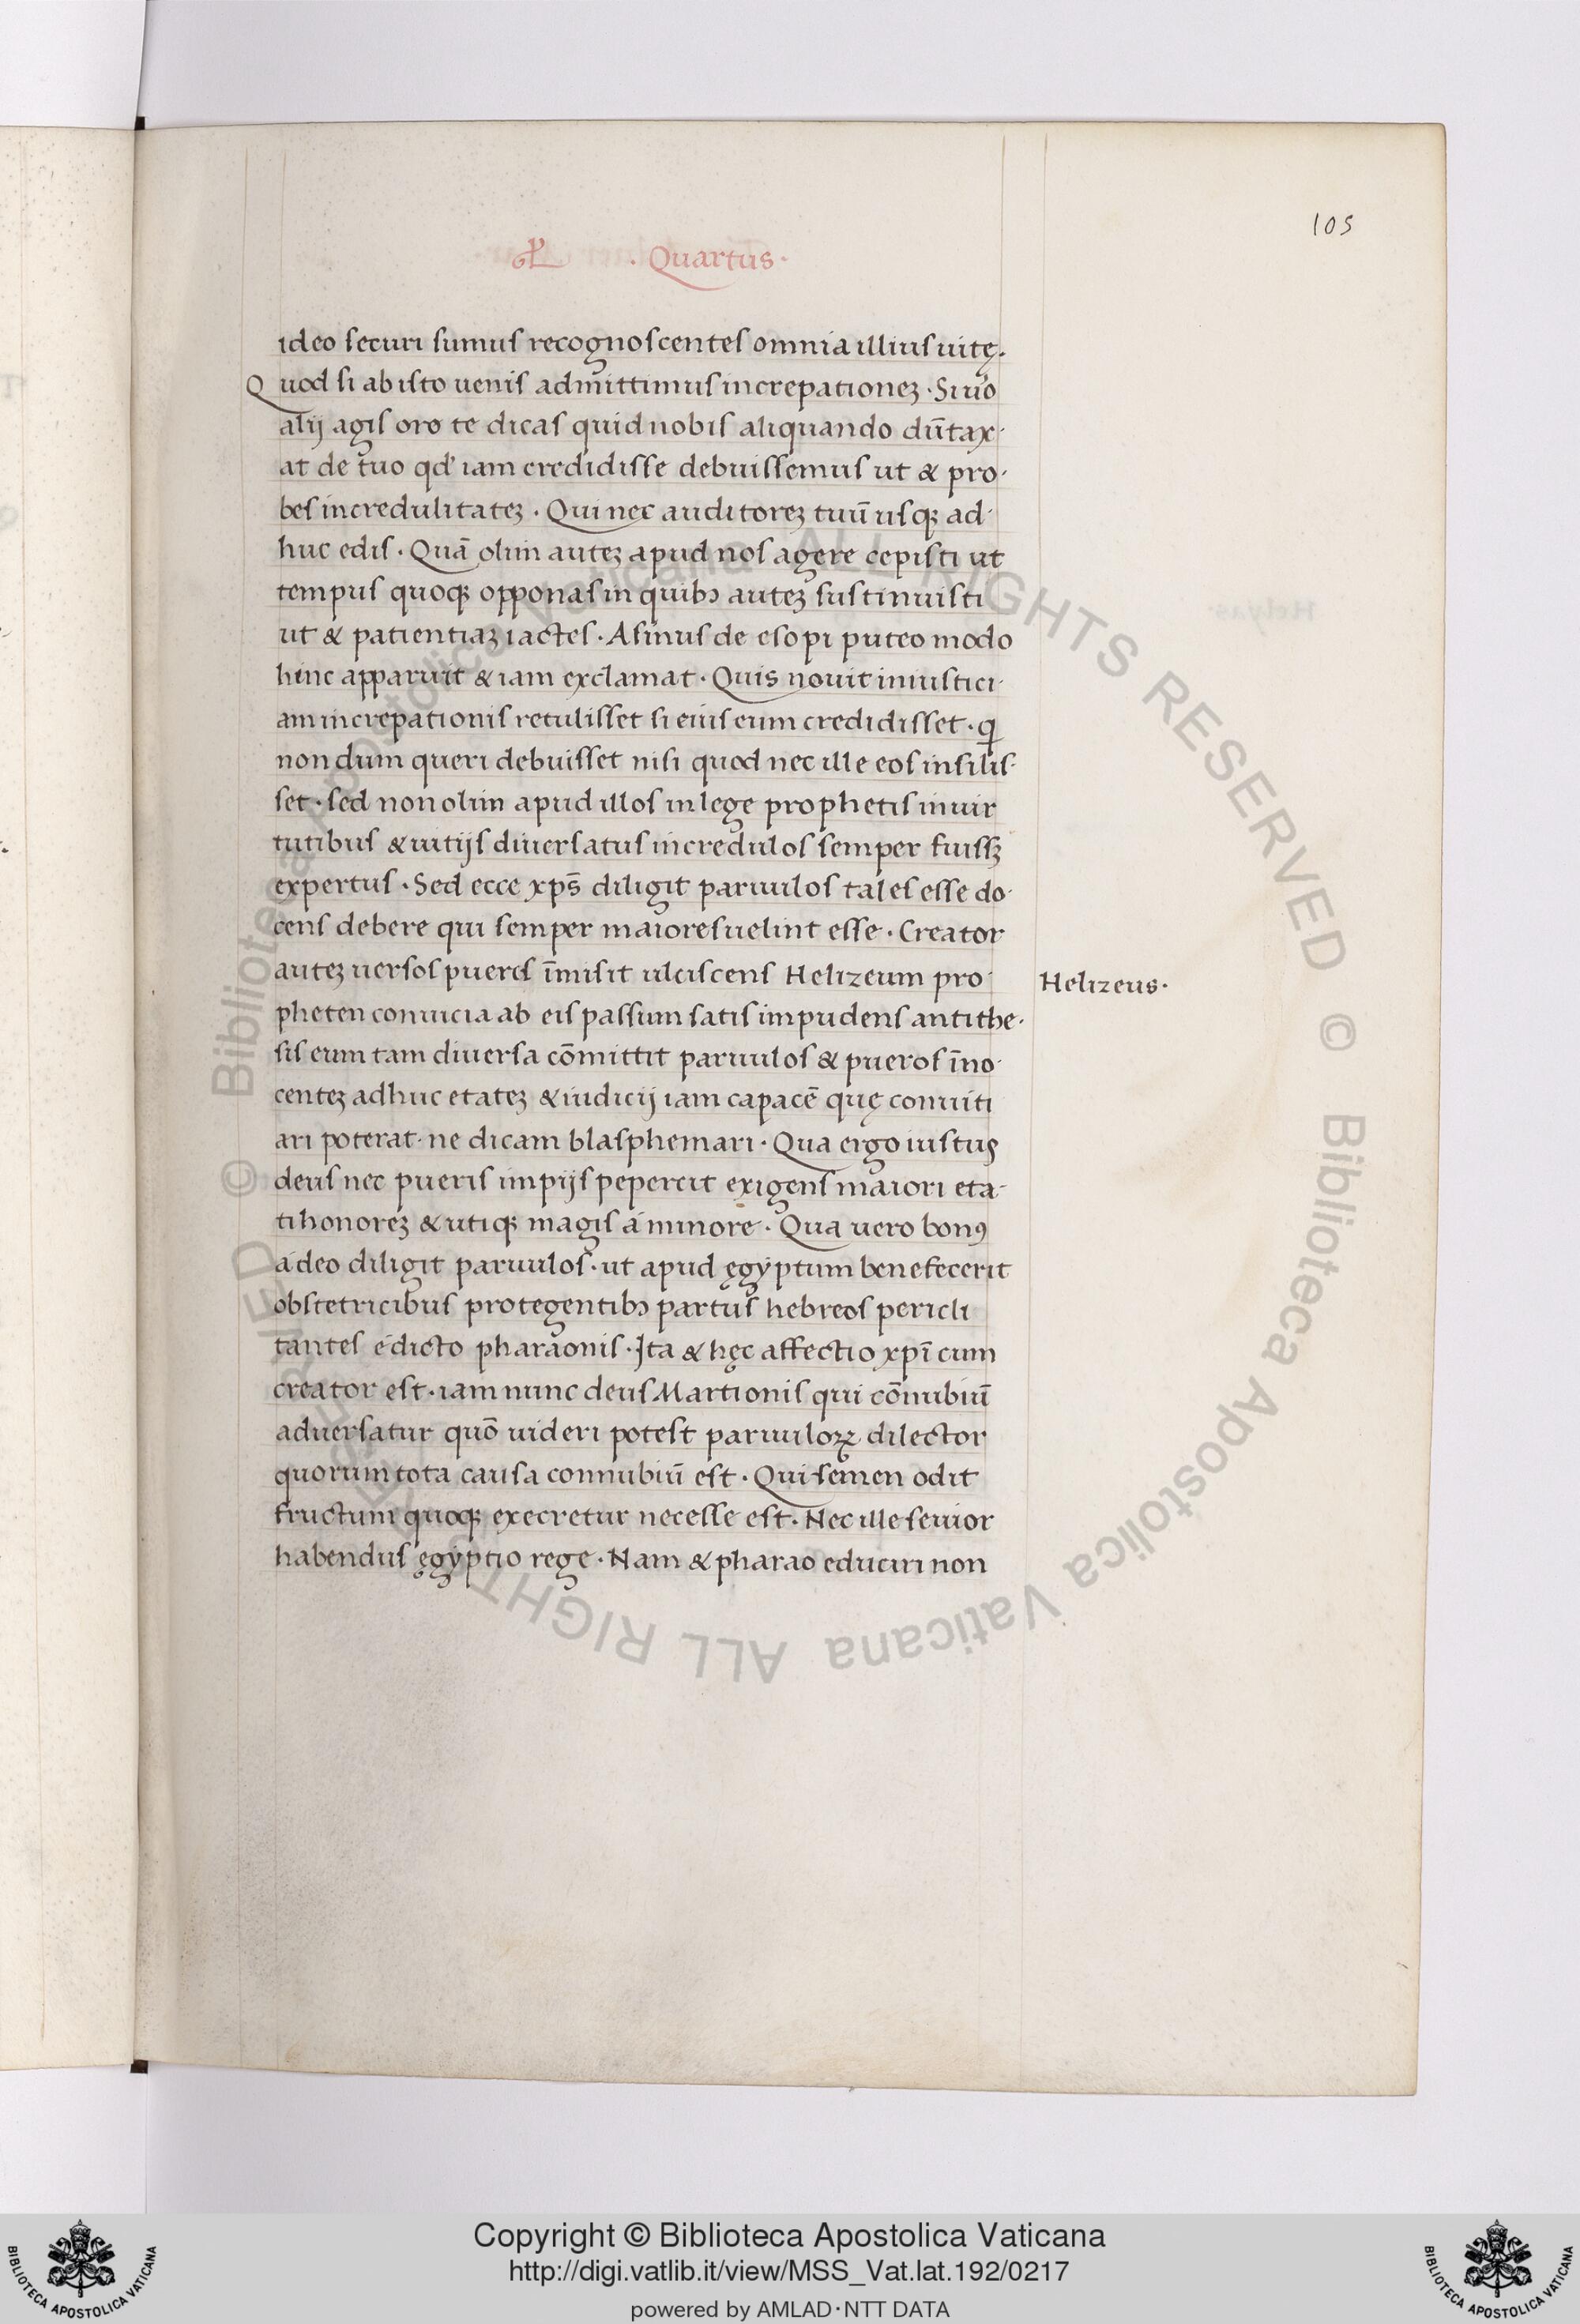 105
· Quartus ·
ideo securi sumus recognoscentes omnia illius uitę.
Quod si ab isto uenis admittimus increpationeꝫ · Si uo
alij agis oro te dicas quid nobis aliquando dūtax·
at de tuo qd' iam credidisse debuissemus ut & pro·
bes incredulitateꝫ · Qui nec auditoreꝫ tuū usqꝫ ad·
huc edis · Quā olim auteꝫ apud nos agere cepisti ut
tempus quoqꝫ opponas in quibꝫ auteꝫ sustinuisti
ut & patientiaꝫ iactes · Asinus de esopi puteo modo
hinc apparuit & iam exclamat · Quis nouit iniustici·
am increpationis retulisset si eius eum credidisset · qͥ
non dum queri debuisset nisi quod nec ille eos insilis·
set · sed non olim apud illos in lege prophetis in uir
tutibus & uitijs diuersatus incredulos semper fuissꝫ
expertus · Sed ecce xp̄s diligit paruulos tales esse do·
cens debere qui semper maiores uelint esse · Creator
auteꝫ uersos pueros īmisit ulciscens Helizeum pro·
Helizeus ·
pheten conuicia ab eis passum satis impudens antithe·
sis eum tam diuersa cōmittit paruulos & pueros īno·
centeꝫ adhuc etateꝫ & iudicij iam capacē quę conuiti
ari poterat · ne dicam blasphemari · Qua ergo iustus
deus nec pueris impijs pepercit exigens maiori eta·
ti honoreꝫ & utiqꝫ magis á minore · Qua uero bonꝰ
adeo diligit paruulos · ut apud ęgyptum benefecerit
obstetricibus protegentibꝫ partus hebreos pericli
tantes edicto pharaonis · Ita & hęc affectio xpī cum
creator est · iam nunc deus Martionis qui cōnubiū
aduersatur quō uideri potest paruuloꝝ dilector
quorum tota causa connubiū est · Qui semen odit
fructum quoqꝫ execretur necesse est · Nec ille seuior
habendus ęgyptio rege · Nam & pharao educiri non
© Biblioteca Apostolica Vaticana ALL RIGHTS RESERVED
© Biblioteca Apostolica Vaticana ALL RIGHTS RESERVED
Copyright © Biblioteca Apostolica Vaticana
http://digi.vatlib.it/view/MSS_Vat.lat.192/0217
powered by AMLAD·NTT DATA
BIBLIOTECA APOSTOLICA VATICANA
BIBLIOTECA APOSTOLICA VATICANA